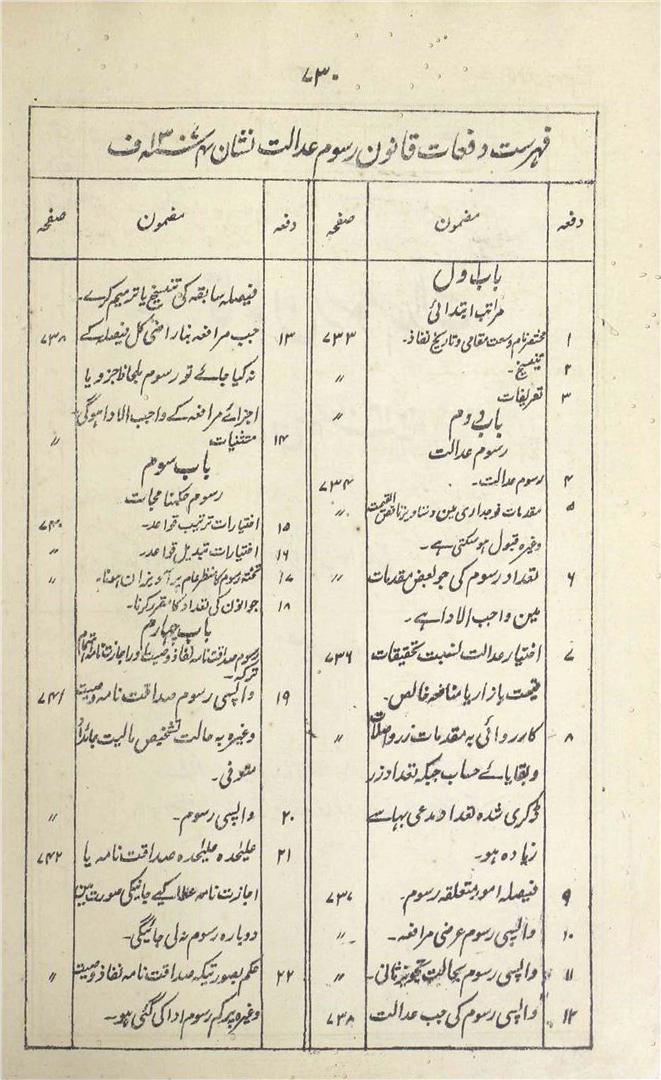 ۷۳۰
فہرست دفعات قانون رسوم عدالت نشان ۴ سنہ ۱۳ ف
دفعہ مضمون صفحہ
باب اول
مراتب ابتدائی
۱ مختصر نام وسعت مقامی و تاریخ نفاذ۔ ۷۳۳
۲ تنسیخ۔ ״
۳ تعریفات ״
باب دوم
رسوم عدالت
۴ رسوم عدالت۔ ۷۳۴
۵ مقدمات فوجداری مین دستاویز ناقص القیمت ״
وغیرہ قبول ہوسکتی ہے۔
۶ تعداد رسوم کی جو بعض مقدمات ״
مین واجب الادا ہے۔
۷ اختیار عدالت نسبت تحقیقات ۷۳۶
قیمت بازار یا منافعہ خالص۔
۸ کارروائی بہ مقدمات زر واصلات ״
و بقایائے حساب جبکہ تعداد زر
ڈکری شدہ تعداد مدعی بہا سے
زیادہ ہو۔
۹ فیصلہ امور متعلقہ رسوم۔ ۷۳۷
۱۰ واپسی رسوم عرضی مرافعہ۔ ״
۱۱ واپسی رسوم بحالت تجویز ثانی۔ ״
۱۲ واپسی رسوم کی جب عدالت ۷۳۸
دفعہ مضمون صفحہ
فیصلہ سابقہ کی تنسیخ یا ترمیم کرے۔
۱۳ جب مرافعہ بناراضی کل فیصلہ کے ۷۳۸
نہ کیا جائے تو رسوم بلحاظ جزو یا
اجزائے مرافعہ کے واجب الادا ہوگی
۱۴ مستثنیات ״
باب سوم
رسوم حکمنامجات
۱۵ اختیارات ترتیب قواعد۔ ۷۴۰
۱۶ اختیارات تبدیل قواعد۔ ״
۱۷ تختہ رسوم کا منظر عام پر آویزان ہونا۔ ״
۱۸ جوانون کی تعداد کا مقرر کرنا۔
باب چہارم
رسوم صداقت نامہ نفاذ وصیت اور اجازت نامہ اہتمام
ترکہ۔
۱۹ واپسی رسوم صداقت نامہ وصیت ۷۴۱
وغیرہ بہ حالت تشخیص مالیت جائداد
متوفی۔
۲۰ واپسی رسوم۔ ״
۲۱ علیٰحدہ علیٰحدہ صداقت نامہ یا ۷۴۲
اجازت نامہ عطا کیے جانیکی صورت مین
دوبارہ رسوم نہ لی جائیگی۔
۲۲ حکم بصورتیکہ صداقت نامہ نفاذ وصیت ״
وغیرہ پر کم رسوم ادا کی گئی ہو۔